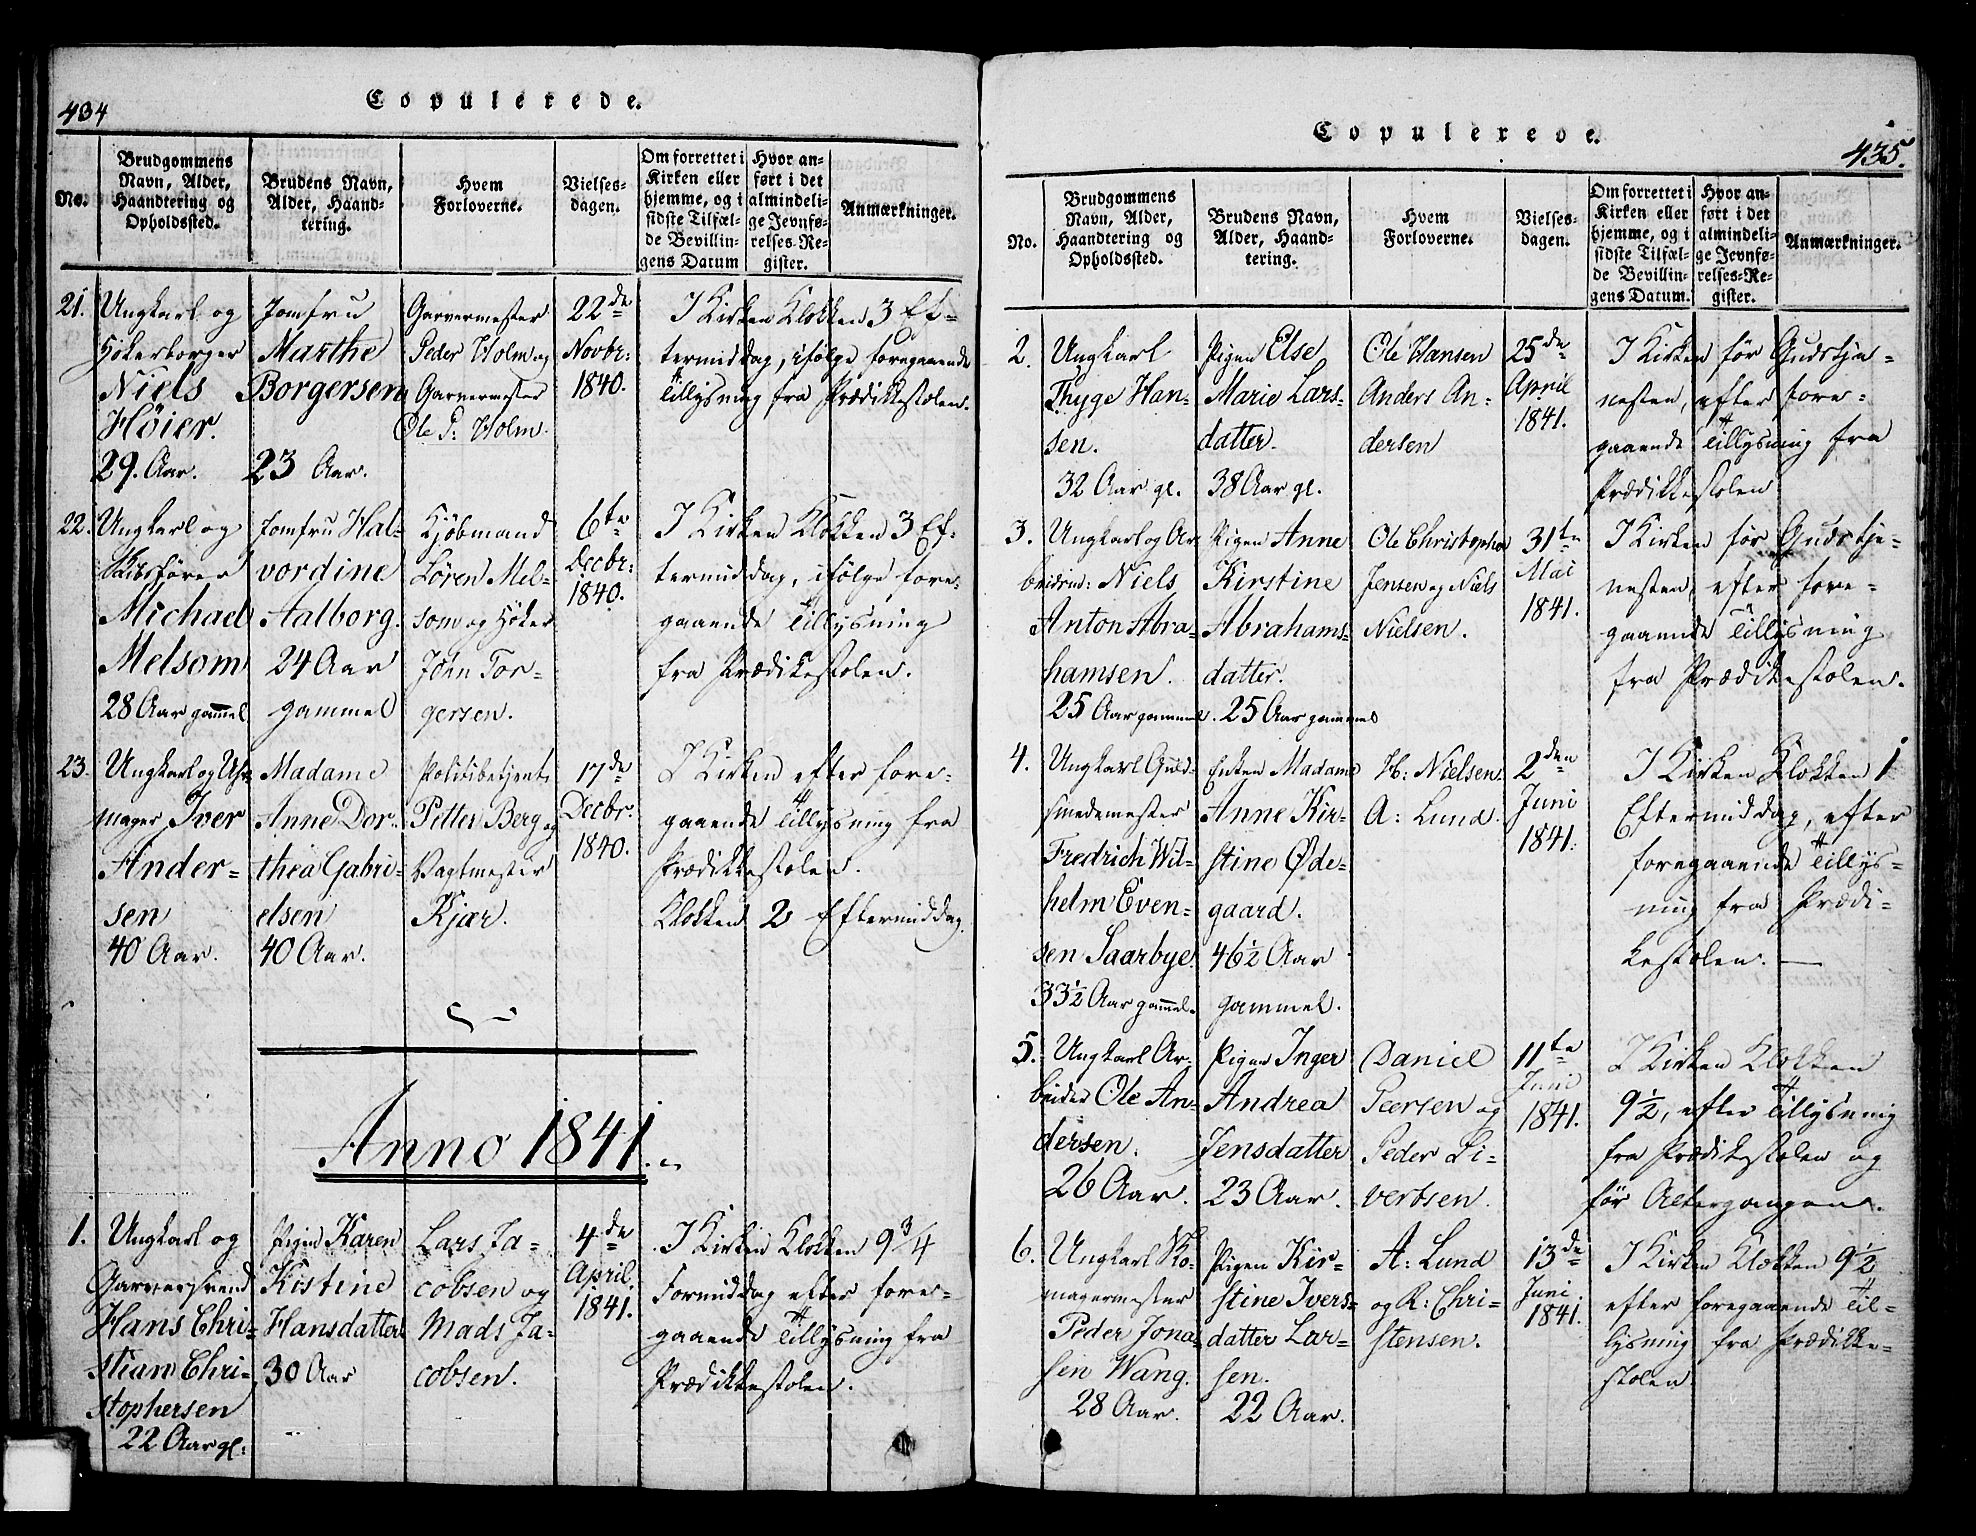 434
Copulerede.
No.
Brudgommens
Navn, Alder,
Haandtering og
Opholdssted.
Brudens Navn,
Alder, Haand-
tering.
Hvem
Forloverne.
Vielses-
dagen.
Om forrettet i
Kirken eller
hjemme, og i
sidste Tilfæl-
de Bevillin-
gens Datum
Hvor an-
ført i det
almindeli-
ge Jevnfø-
relses-Re-
gister.
Anmærkninger.
21.
Ungkarl og
Høkerborger
Niels
Høier.
29. Aar.
Jomfru
Marthe
Borgersen
23 Aar.
Garvermester
Peder Holm og
Garvermester
Ole P: Holm.
22de
Novbr:
1840.
I Kirken Klokken 3 Ef-
termiddag, ifølge foregaaende
Tillysning fra Prædikkestolen.
22.
Ungkarl og
Skibsfører
Michael
Melsom
28 Aar gammel
Jomfru Hal-
vordine
Aalborg.
24 Aar
gammel
Kjøbmand
Søren Mel-
som og Høker
John Tor-
gersen.
6te
Decbr:
1840.
I Kirken Klokken 3 Ef-
termiddag, ifølge fore-
gaaende Tillysning
fra Prædikestolen.
23.
Ungkarl og Uhr-
mager Iver
Ander-
sen
40 Aar.
Madame
Anne Dor-
thea Gabri-
elsen
40 Aar.
Politibetjent
Petter Berg og
Vagtmester
Kjær.
17de
Decbr.
1840.
I Kirken efter fore-
gaaende Tillysning fra
Prædikkestolen.
Klokken 2 Eftermiddag.
Anno 1841.
1.
Ungkarl og
Garversvend
Hans Chri-
stian Chri-
stophersen
22 Aar gl:
Pigen Karen
Kistine
Hansdatter
30 Aar
Lars Ja-
cobsen og
Mads Ja-
cobsen.
4de
April.
1841.
I Kirken Klokken 9 3/4
Formiddag efter fore-
gaaende Tillysning fra
Prædikkestolen.
Copulerede.
435.
No.
Brudgommens
Navn, Alder,
Haandtering og
Opholdssted.
Brudens Navn,
Alder, Haand-
tering.
Hvem
Forloverne.
Vielses-
dagen.
Om forrettet i
Kirken eller
hjemme, og i
sidste Tilfæl-
de Bevillin-
gens Datum.
Hvor an-
ført i det
almindeli-
ge Jevnfø-
relses-Re-
gister.
Anmærkninger.
2.
Ungkarl
Thyge Han-
sen.
32 Aar gl.
Pigen Else
Marie Lars-
datter.
38 Aar gl.
Ole Hansen
Anders An-
dersen
25de
April
1841.
I Kirken før Gudstje-
nesten, efter fore-
gaaende Tillysning fra
Prædikkestolen
3.
Ungkarl og Ar-
beidsm: Niels
Anton Abra-
hamsen.
25 Aar gammel.
Pigen Anne
Kirstine
Abrahams-
datter.
25 Aar gammel
Ole Christopher
Jensen og Niels
Nielsen.
31te
Mai
1841.
I Kirken før Gudstje-
nesten, efter fore-
gaaende Tillysning
fra Prædikkestolen.
4.
Ungkarl Guld-
smedemester
Fredrich Wil-
helm Even-
sen Saarbye.
33½ Aar gammel.
Enken Madame
Anne Kir-
stine Øde-
gaard.
46½ Aar
gammel.
H: Nielsen
A: Lund.
2den
Juni
1841.
I Kirken Klokken 1
Eftermiddag, efter
foregaaende Tillys-
ning fra Prædi-
kestolen.
5.
Ungkarl Ar-
beider Ole An-
dersen.
26 Aar.
Pigen Inger
Andrea
Jensdatter
23 Aar.
Daniel
Peersen og
Peder Si-
vertsen.
11te
Juni
1841.
I Kirken Klokken
9½, efter Tillysning
fra Prædikestolen og
før Altergangen.
6.
Ungkarl Ko-
magermester
Peder Jona-
sen Wang.
28 Aar.
Pigen Kir-
stine Ivers-
datter Lar-
sen.
22 Aar.
A: Lund
og R: Chri-
stensen.
13de
Juni
1841.
I Kirken Klokken 9½
efter foregaaende Til-
lysning fra Prædikke-
stolen